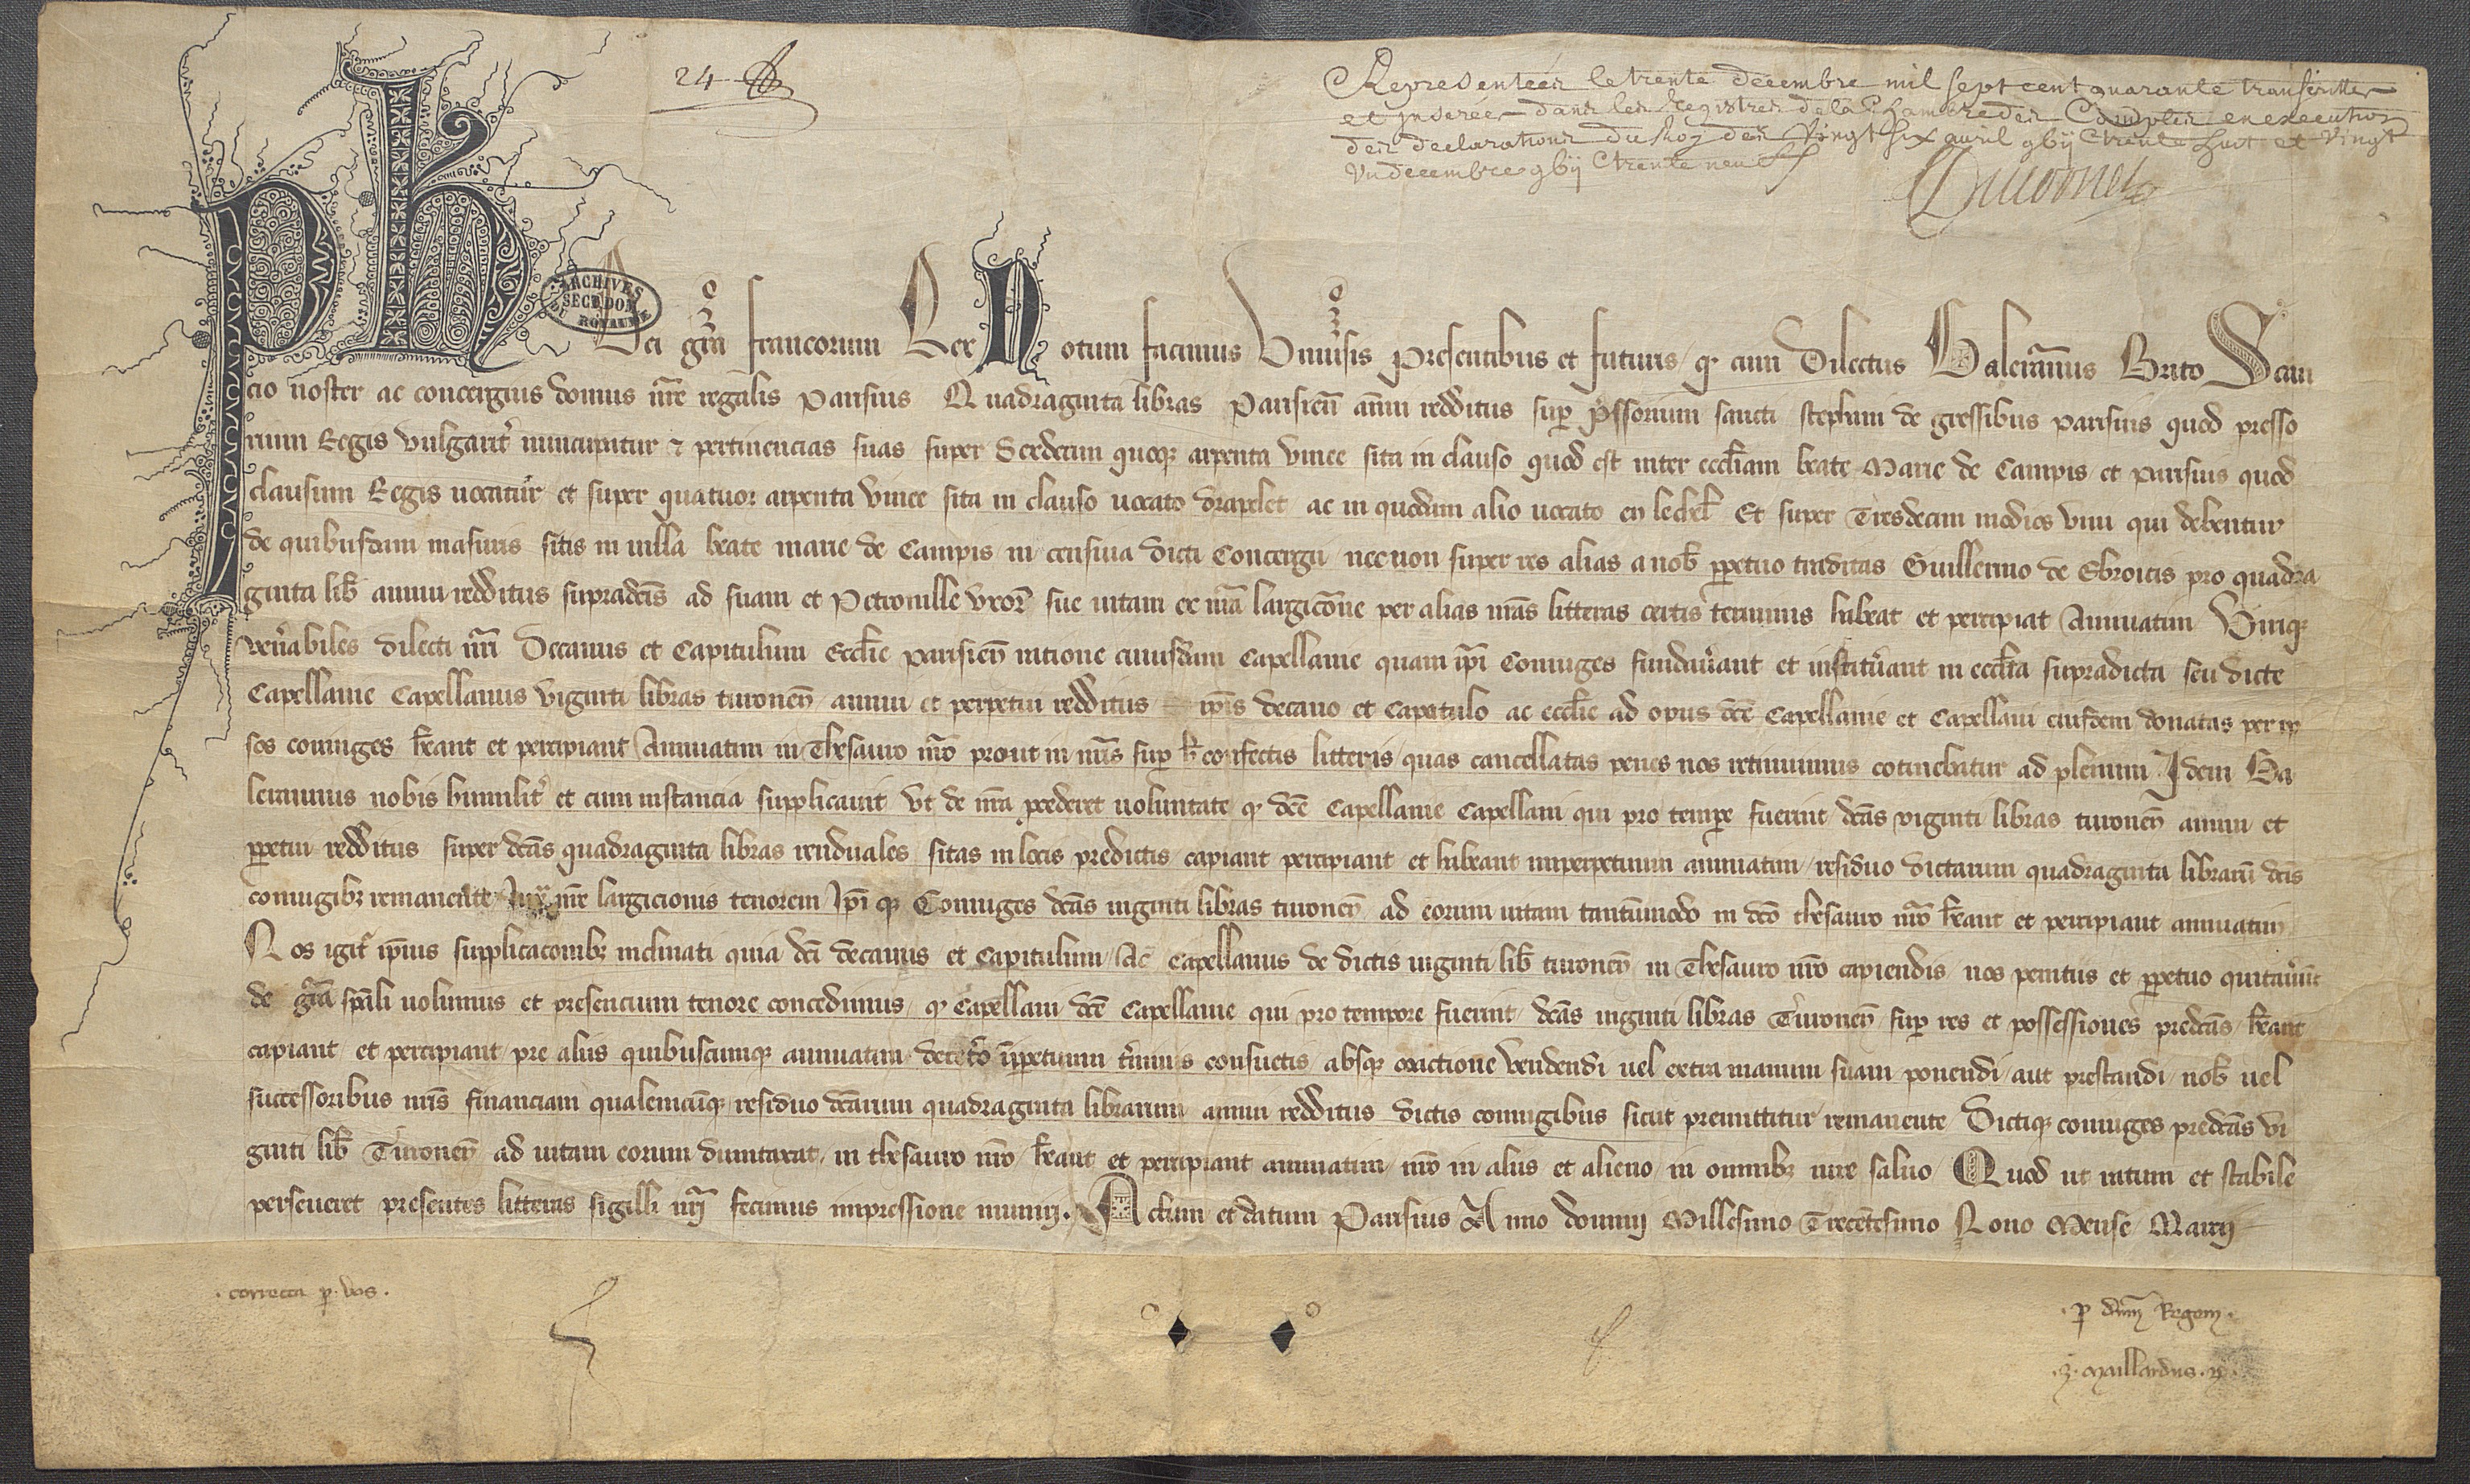 24
Representées le trente decembre mil sept cent quarante transcritte
et inserée dans les Registres de la Chambre des Comptes en execution
des declarations du Roy des Vingt six avril gbij C trente huit et Vingt
Un decembre gbij C trente neuf
Ph
ARCHIVES
SECT. DOM.
DU ROYAUME
Dei grã francorum Rex Notum facimus Universis presentibus et futuris / qz cum Dilectus Galerannus Brito Scan
cio noster ac concergius domus nr̃e regalis Parisius Quadraginta libras Parisien̄ annui redditus sup̱ p̱ssorium sancti stephani de gressibus parisius quod presso
rium Regis vulgarit̃ nuncupatur ⁊ pertinencias suas super Sexdecim quoqz arpenta vinee sita in clauso quod est inter eccl̃iam beate Marie de Campis et Parisius quod
clausum Regis uocatur et super quatuor arpenta vinee sita in clauso uocato drapelet ac in quodam alio uocato en Et super Tresdecim modios vini qui debentur
de quibusdam masuris sitis in uilla beate marie de Campis in censiua dicti Concergii necnon super res alias a nob̃ p̱petuo traditas Guillermo de Ebroicis pro quadra
ginta lib̃ annui redditus supradc̃is ad suam et Petronille vxor̃ sue uitam ex nr̃a largic̃one per alias nr̃as litteras certis terminis habeat et percipiat Annuatim
ven̄abiles dilecti nr̃i Decanus et Capitulum Eccl̃ie parisien̄ ratione cuiusdam Capellanie quam ip̃i Coniuges fundav̄ant et instituv̄ant in eccl̃ia supradicta seu dicte
Capellanie Capellanus viginti libras turonen̄ annui et perpetui redditus ip̃is decano et capitulo ac eccl̃ie ad opus dc̃e Capellanie et Capellani eiusdem donatas per ip
sos coniuges h̃eant et percipiant Annuatim in Thesauro nr̃o prout in nr̃is sup̱ h̃ confectis litteris / quas cancellatas penes nos retinuimus cōtinebatur ad plenum Idem Ga
lerannus nobis humilit̃ et cum instancia supplicauit vt de nr̃a p̱cederet uoluntate qz dc̃e Capellanie Capellani qui pro temp̱e fuerint dc̃as viginti libras turonen̄ annui et
p̱petui redditus super dc̃as quadraginta libras renduales sitas in locis predictis capiant percipiant et habeant imperpetuum annuatim / residuo dictarum quadraginta librarū dc̃is
coniugibz remanente / iux̃ nr̃e largicionis tenorem Ip̃i qz Coniuges dc̃as uiginti libras turonen̄ ad eorum uitam tantūmodo in dc̃o thesauro nr̃o h̃eant et percipiant annuatim
Nos igit̃ ip̃ius supplicac̃onibz inclinati quia dc̃i decanus et Capitulum / Ac Capellanus de dictis uiginti lib̃ turonen̄ in Thesauro nr̃o capiendis nos penitus et p̱petuo quitav̄unt
de grã sp̃ali uolumus et presencium tenore concedimus / qz Capellani dc̃e Capellanie qui pro tempore fuerint / dc̃as uiginti libras Turonen̄ sup̱ res et possessiones predc̃as / h̃eant
capiant / et percipiant / pre aliis quibuscumqz annuatim / decet̃o īp̱petuum t̃minis consuetis absqz coactione vendendi uel extra manum suam ponendi / aut prestandi nob̃ uel
successoribus nr̃is financiam qualemcūqz / residuo dc̃arum quadraginta librarum annui redditus dictis coniugibus sicut premittitur remanente Dictiqz coniuges predc̃as vi
ginti lib̃ Turonen̄ ad uitam eorum dumtaxat / in thesauro nr̃o / h̃eant et percipiant annuatim / nr̃o in aliis et alieno in omnibz iure saluo Quod ut ratum et stabile
perseueret presentes litteras sigilli nr̃i fecimus impressione muniri. Actum et datum Parisius Anno domini Millesimo Trecētesimo Nono Mense Marcij
. correcta p̱ vos .
. p̱ dn̄m Regem .
. Maillardus .